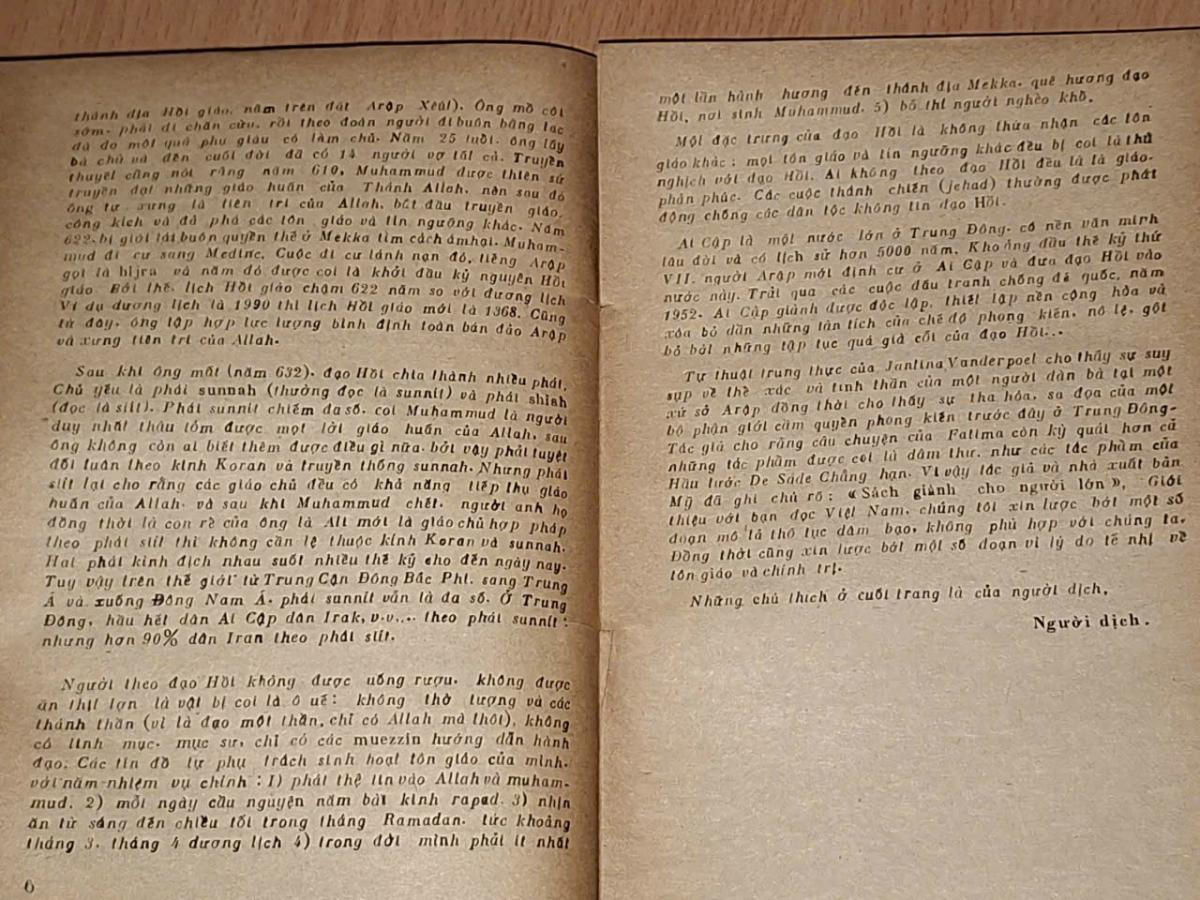 thánh địa Hồi giáo, nằm trên đất Arập Xêút). Ông mồ côi
sớm, phải đi chăn cừu, rồi theo đoàn người đi buôn bằng lạc
đà do một quả phụ giàu có làm chủ. Năm 25 tuổi, ông lấy
bà chủ và đến cuối đời đã có 14 người vợ tất cả. Truyền
thuyết cũng nói rằng năm 610, Muhammud được thiên sứ
truyền đạt những giáo huấn của Thánh Allah, nên sau đó
ông tự xưng là tiên tri của Allah, bắt đầu truyền giáo,
công kích và đả phá các tôn giáo và tín ngưỡng khác. Năm
622, bị giới lái buôn quyền thế ở Mekka tìm cách ám hại, Muham-
mud di cư sang Medine. Cuộc di cư lánh nạn đó, tiếng Arập
gọi là hijra và năm đó được coi là khởi đầu kỷ nguyên Hồi
giáo. Bởi thế, lịch Hồi giáo chậm 622 năm so với dương lịch
Ví dụ dương lịch là 1990 thì lịch Hồi giáo mới là 1368. Cũng
từ đây, ông tập hợp lực lượng bình định toàn bán đảo Arập
và xưng tiên tri của Allah.
Sau khi ông mất (năm 632), đạo Hồi chia thành nhiều phái,
Chủ yếu là phái sunnah (thường đọc là sunnit) và phái shiah
(đọc là siit). Phái sunnit chiếm đa số, coi Muhammud là người
duy nhất thâu tóm được mọi lời giáo huấn của Allah, sau
ông không còn ai biết thêm được điều gì nữa, bởi vậy phải tuyệt
đối tuân theo kinh Koran và truyền thống sunnah. Nhưng phái
siit lại cho rằng các giáo chủ đều có khả năng tiếp thụ giáo
huấn của Allah, và sau khi Muhammud chết, người anh họ
đồng thời là con rể của ông là Ali mới là giáo chủ hợp pháp
theo phái siit thì không cần lệ thuộc kinh Koran và sunnah.
Hai phái kình địch nhau suốt nhiều thế kỷ cho đến ngày nay.
Tuy vậy trên thế giới từ Trung Cận Đông Bắc Phi, sang Trung
Á và xuống Đông Nam Á, phái sunnit vẫn là đa số. Ở Trung
Đông, hầu hết dân Ai Cập dân Irak, v.v... theo phái sunnit;
nhưng hơn 90% dân Iran theo phái siit.
Người theo đạo Hồi không được uống rượu, không được
ăn thịt lợn là vật bị coi là ô uế; không thờ tượng và các
thánh thần (vì là đạo một thần, chỉ có Allah mà thôi), không
có linh mục, mục sư, chỉ có các muezzin hướng dẫn hành
đạo. Các tín đồ tự phụ trách sinh hoạt tôn giáo của mình,
với năm nhiệm vụ chính : 1) phát thệ tin vào Allah và muham-
mud. 2) mỗi ngày cầu nguyện năm bài kinh rapad. 3) nhịn
ăn từ sáng đến chiều tối trong tháng Ramadan, tức khoảng
tháng 3, tháng 4 dương lịch 4) trong đời mình phải ít nhất
6
một lần hành hương đến thánh địa Mekka, quê hương đạo
Hồi, nơi sinh Muhammud. 5) bố thí người nghèo khổ.
Một đặc trưng của đạo Hồi là không thừa nhận các tôn
giáo khác ; mọi tôn giáo và tín ngưỡng khác đều bị coi là thù
nghịch với đạo Hồi. Ai không theo đạo Hồi đều là tà giáo-
phản phúc. Các cuộc thánh chiến (jehad) thường được phát
động chống các dân tộc không tin đạo Hồi.
Ai Cập là một nước lớn ở Trung Đông, có nền văn minh
lâu đời và có lịch sử hơn 5000 năm. Khoảng đầu thế kỷ thứ
VII, người Arập mới định cư ở Ai Cập và đưa đạo Hồi vào
nước này. Trải qua các cuộc đấu tranh chống đế quốc, năm
1952, Ai Cập giành được độc lập, thiết lập nền cộng hòa và
xóa bỏ dần những tàn tích của chế độ phong kiến, nô lệ, gột
bỏ bớt những tập tục quá già cỗi của đạo Hồi...
Tự thuật trung thực của Jantina Vanderpoel cho thấy sự suy
sụp về thể xác và tinh thần của một người đàn bà tại một
xứ sở Arập đồng thời cho thấy sự tha hóa, sa đọa của một
bộ phận giới cầm quyền phong kiến trước đây ở Trung Đông-
Tác giả cho rằng câu chuyện của Fatima còn kỳ quái hơn cả
những tác phẩm được coi là dâm thư, như các tác phẩm của
Hầu tước De Sade Chẳng hạn. Vì vậy tác giả và nhà xuất bản
Mỹ đã ghi chú rõ : «Sách giành cho người lớn», Giới
thiệu với bạn đọc Việt Nam, chúng tôi xin lược bớt một số
đoạn mô tả thô tục dâm bạo, không phù hợp với chúng ta,
Đồng thời cũng xin lược bớt một số đoạn vì lý do tế nhị về
tôn giáo và chính trị.
Những chú thích ở cuối trang là của người dịch.
Người dịch.